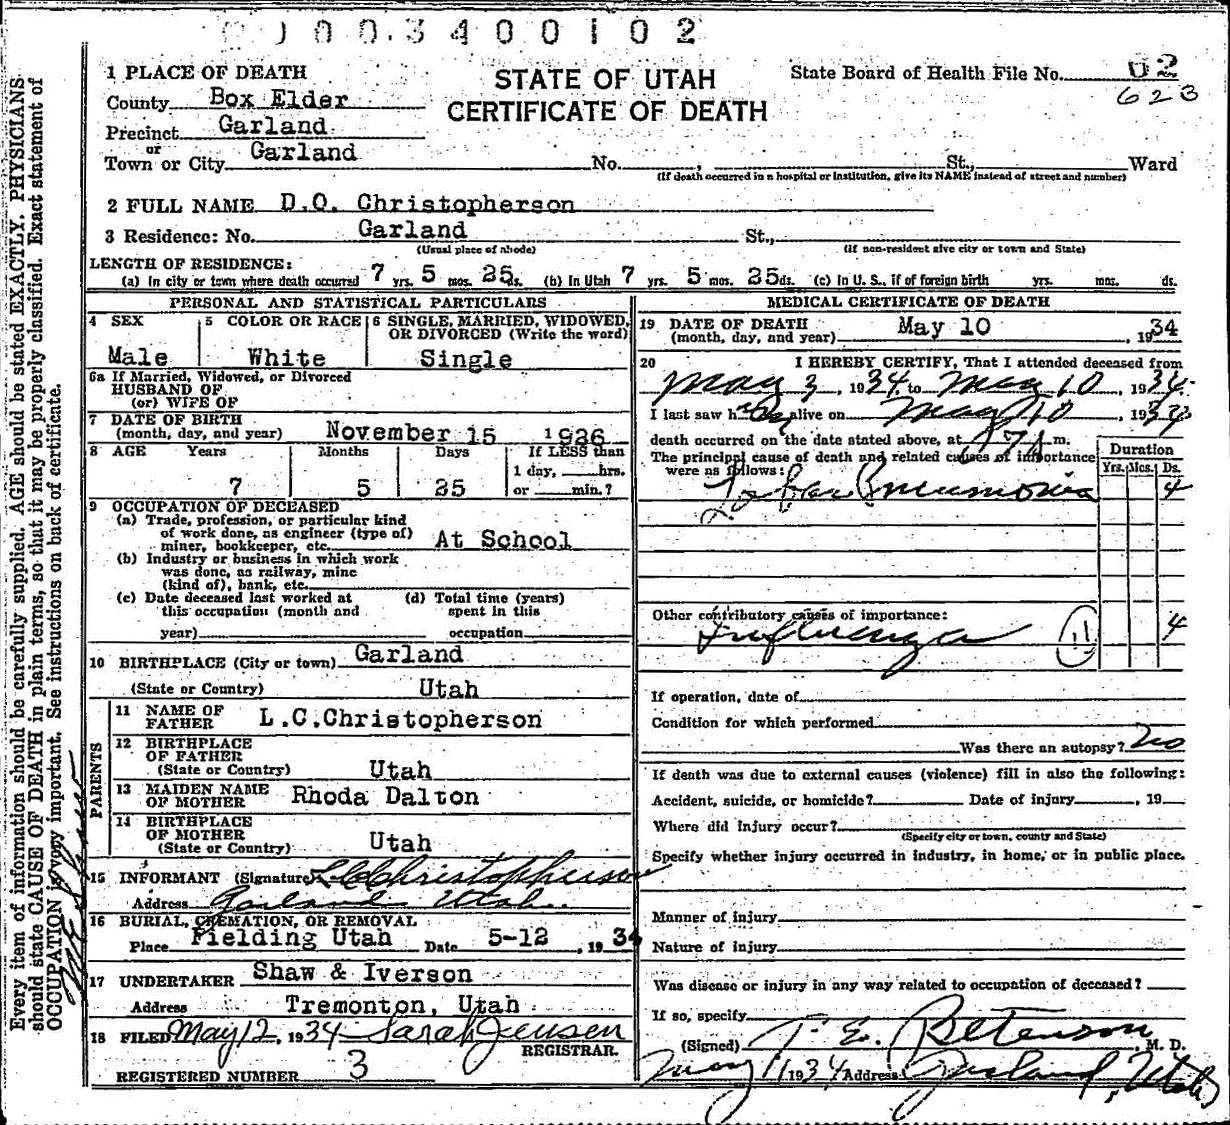 0 0 3 4 0 0 1 0 2
1 PLACE OF DEATH
STATE OF UTAH
CERTIFICATE OF DEATH
State Board of Health File No. 02
623
County Box Elder
Precinct Garland
or
Town or City Garland No. , St., Ward
(If death occurred in a hospital or institution, give its NAME instead of street and number)
2 FULL NAME D.O. Christopherson
3 Residence: No. Garland St.,
(Usual place of abode) (If non-resident give city or town and State)
LENGTH OF RESIDENCE:
(a) In city or town where death occurred 7 yrs. 5 mos. 25 ds. (b) In Utah 7 yrs. 5 mos. 25 ds. (c) In U. S., if of foreign birth yrs. mos. ds.
PERSONAL AND STATISTICAL PARTICULARS
4 SEX
Male
5 COLOR OR RACE
White
6 SINGLE, MARRIED, WIDOWED, OR DIVORCED (Write the word)
Single
6a If Married, Widowed, or Divorced
HUSBAND OF
(or) WIFE OF
7 DATE OF BIRTH
(month, day, and year) November 15 1926
8 AGE Years Months Days If LESS than
1 day, hrs.
7 5 25 or min.?
9 OCCUPATION OF DECEASED
(a) Trade, profession, or particular kind
of work done, as engineer (type of)
miner, bookkeeper, etc. At School
(b) Industry or business in which work
was done, as railway, mine
(kind of), bank, etc.
(c) Date deceased last worked at
this occupation (month and
year)
(d) Total time (years)
spent in this
occupation
10 BIRTHPLACE (City or town) Garland
(State or Country) Utah
PARENTS
11 NAME OF
FATHER L.C.Christopherson
12 BIRTHPLACE
OF FATHER
(State or Country) Utah
13 MAIDEN NAME
OF MOTHER Rhoda Dalton
14 BIRTHPLACE
OF MOTHER
(State or Country) Utah
15 INFORMANT (Signature) L C Christopherson
Address Garland Utah.
16 BURIAL, CREMATION, OR REMOVAL
Place Fielding Utah Date 5-12, 1934
17 UNDERTAKER Shaw & Iverson
Address Tremonton, Utah
18 FILED May 12, 1934 Sarah Jensen
REGISTRAR.
REGISTERED NUMBER 3
MEDICAL CERTIFICATE OF DEATH
19 DATE OF DEATH
(month, day, and year) May 10, 1934
20 I HEREBY CERTIFY, That I attended deceased from
May 3, 1934 to May 10, 1934
I last saw h alive on May 10 1934
death occurred on the date stated above, at m.
The principal cause of death and related causes of importance
were as follows:
Duration
Yrs. Mos. Ds.
Lobar Pneumonia 4
Other contributory causes of importance:
Influenza 11 4
If operation, date of
Condition for which performed
Was there an autopsy? No
If death was due to external causes (violence) fill in also the following:
Accident, suicide, or homicide? Date of injury , 19
Where did injury occur?
(Specify city or town, county and State)
Specify whether injury occurred in industry, in home, or in public place.
Manner of injury
Nature of injury
Was disease or injury in any way related to occupation of deceased?
If so, specify
(Signed) T. E. Betenson, M. D.
May 11 1934 Address Garland, Utah
Every item of information should be carefully supplied. AGE should be stated EXACTLY. PHYSICIANS
should state CAUSE OF DEATH in plain terms, so that it may be properly classified. Exact statement of
OCCUPATION is very important. See instructions on back of certificate.